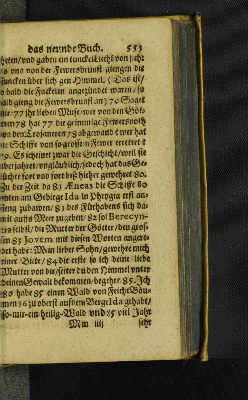 das neunde Buch. 553
hreten/vnd gaben ein tunckel recht von sich:
vnd von der Fewersbrunst giengen die
Funcken über sich gen Himmel. (Das ist/
bald die Fackeln angezündet waren/so
bald gieng die Fewersbrunst an) 70 Saget
mir/77 ihr lieben Musæ/wer von den Göt-
tern 78 hat 77 die grimmige Fewersnoth
von den Trojaneren 78 abgewand/ wer hat
die Schiffe von so grossem Fewer errettet
79. Es scheinet zwar die Geschicht/weil sie
über jahet/vnglaublich/jedoch hat das Ge-
rüchte fort vnd fort biß hieher geweret 80.
Zu der Zeit da 81 Æneas die Schiffe 80
vnten am Gebirge Ida in Phrygia erst an-
fieng zubawen/81 vnd Fürhabens sich da-
mit auffs Meer zugeben/82 sol Berecyn-
tia selbst/die Mutter der Götter/den gros-
sen 83 Jovem mit diesen Worten angere-
det habe: Mein lieber Sohn/gewehre mich
einer Bitte/84 die erste so ich deine liebe
Mutter von dir/seiter du den Himmel vnter
deinen Gewalt bekommen/begehre. 85. Ich
86 habe 85 einen Wald von Feichte Bäu-
men 36 zu oberst auff dem Berge Ida gehabt/
so mir ein heilig Wald vnd 85 viel Jahr
Mm iiij sehr